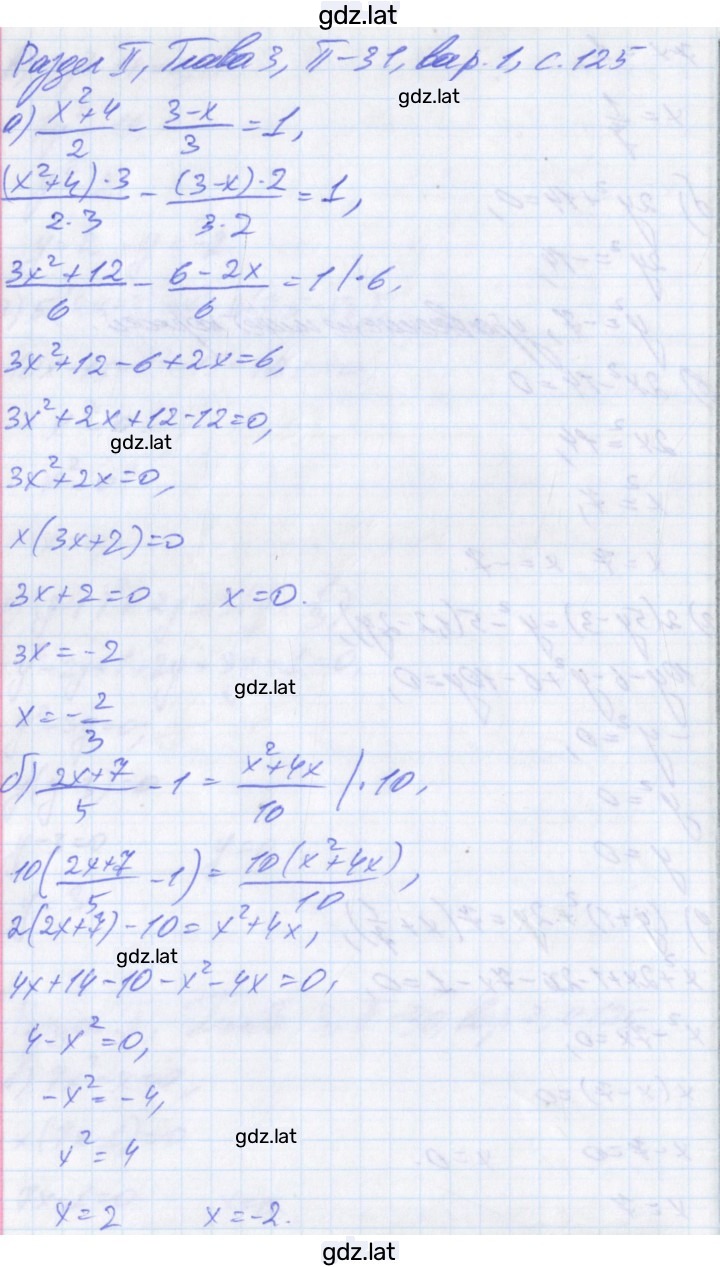 gdz.lat
Раздел II, Глава 3, П-31, вар. 1, с. 125
gdz.lat
а) (x²+4)/2 - (3-x)/3 = 1,
((x²+4)·3)/(2·3) - ((3-x)·2)/(3·2) = 1,
(3x²+12)/6 - (6-2x)/6 = 1 |·6,
3x²+12-6+2x=6,
3x²+2x+12-12=0,
gdz.lat
3x²+2x=0,
x(3x+2)=0
3x+2=0 x=0.
3x=-2
gdz.lat
x=-2/3
б) (2x+7)/5 - 1 = (x²+4x)/10 |·10,
10((2x+7)/5 - 1) = (10(x²+4x))/10,
2(2x+7)-10=x²+4x,
gdz.lat
4x+14-10-x²-4x=0,
4-x²=0,
-x²=-4,
gdz.lat
x²=4
x=2 x=-2.
gdz.lat